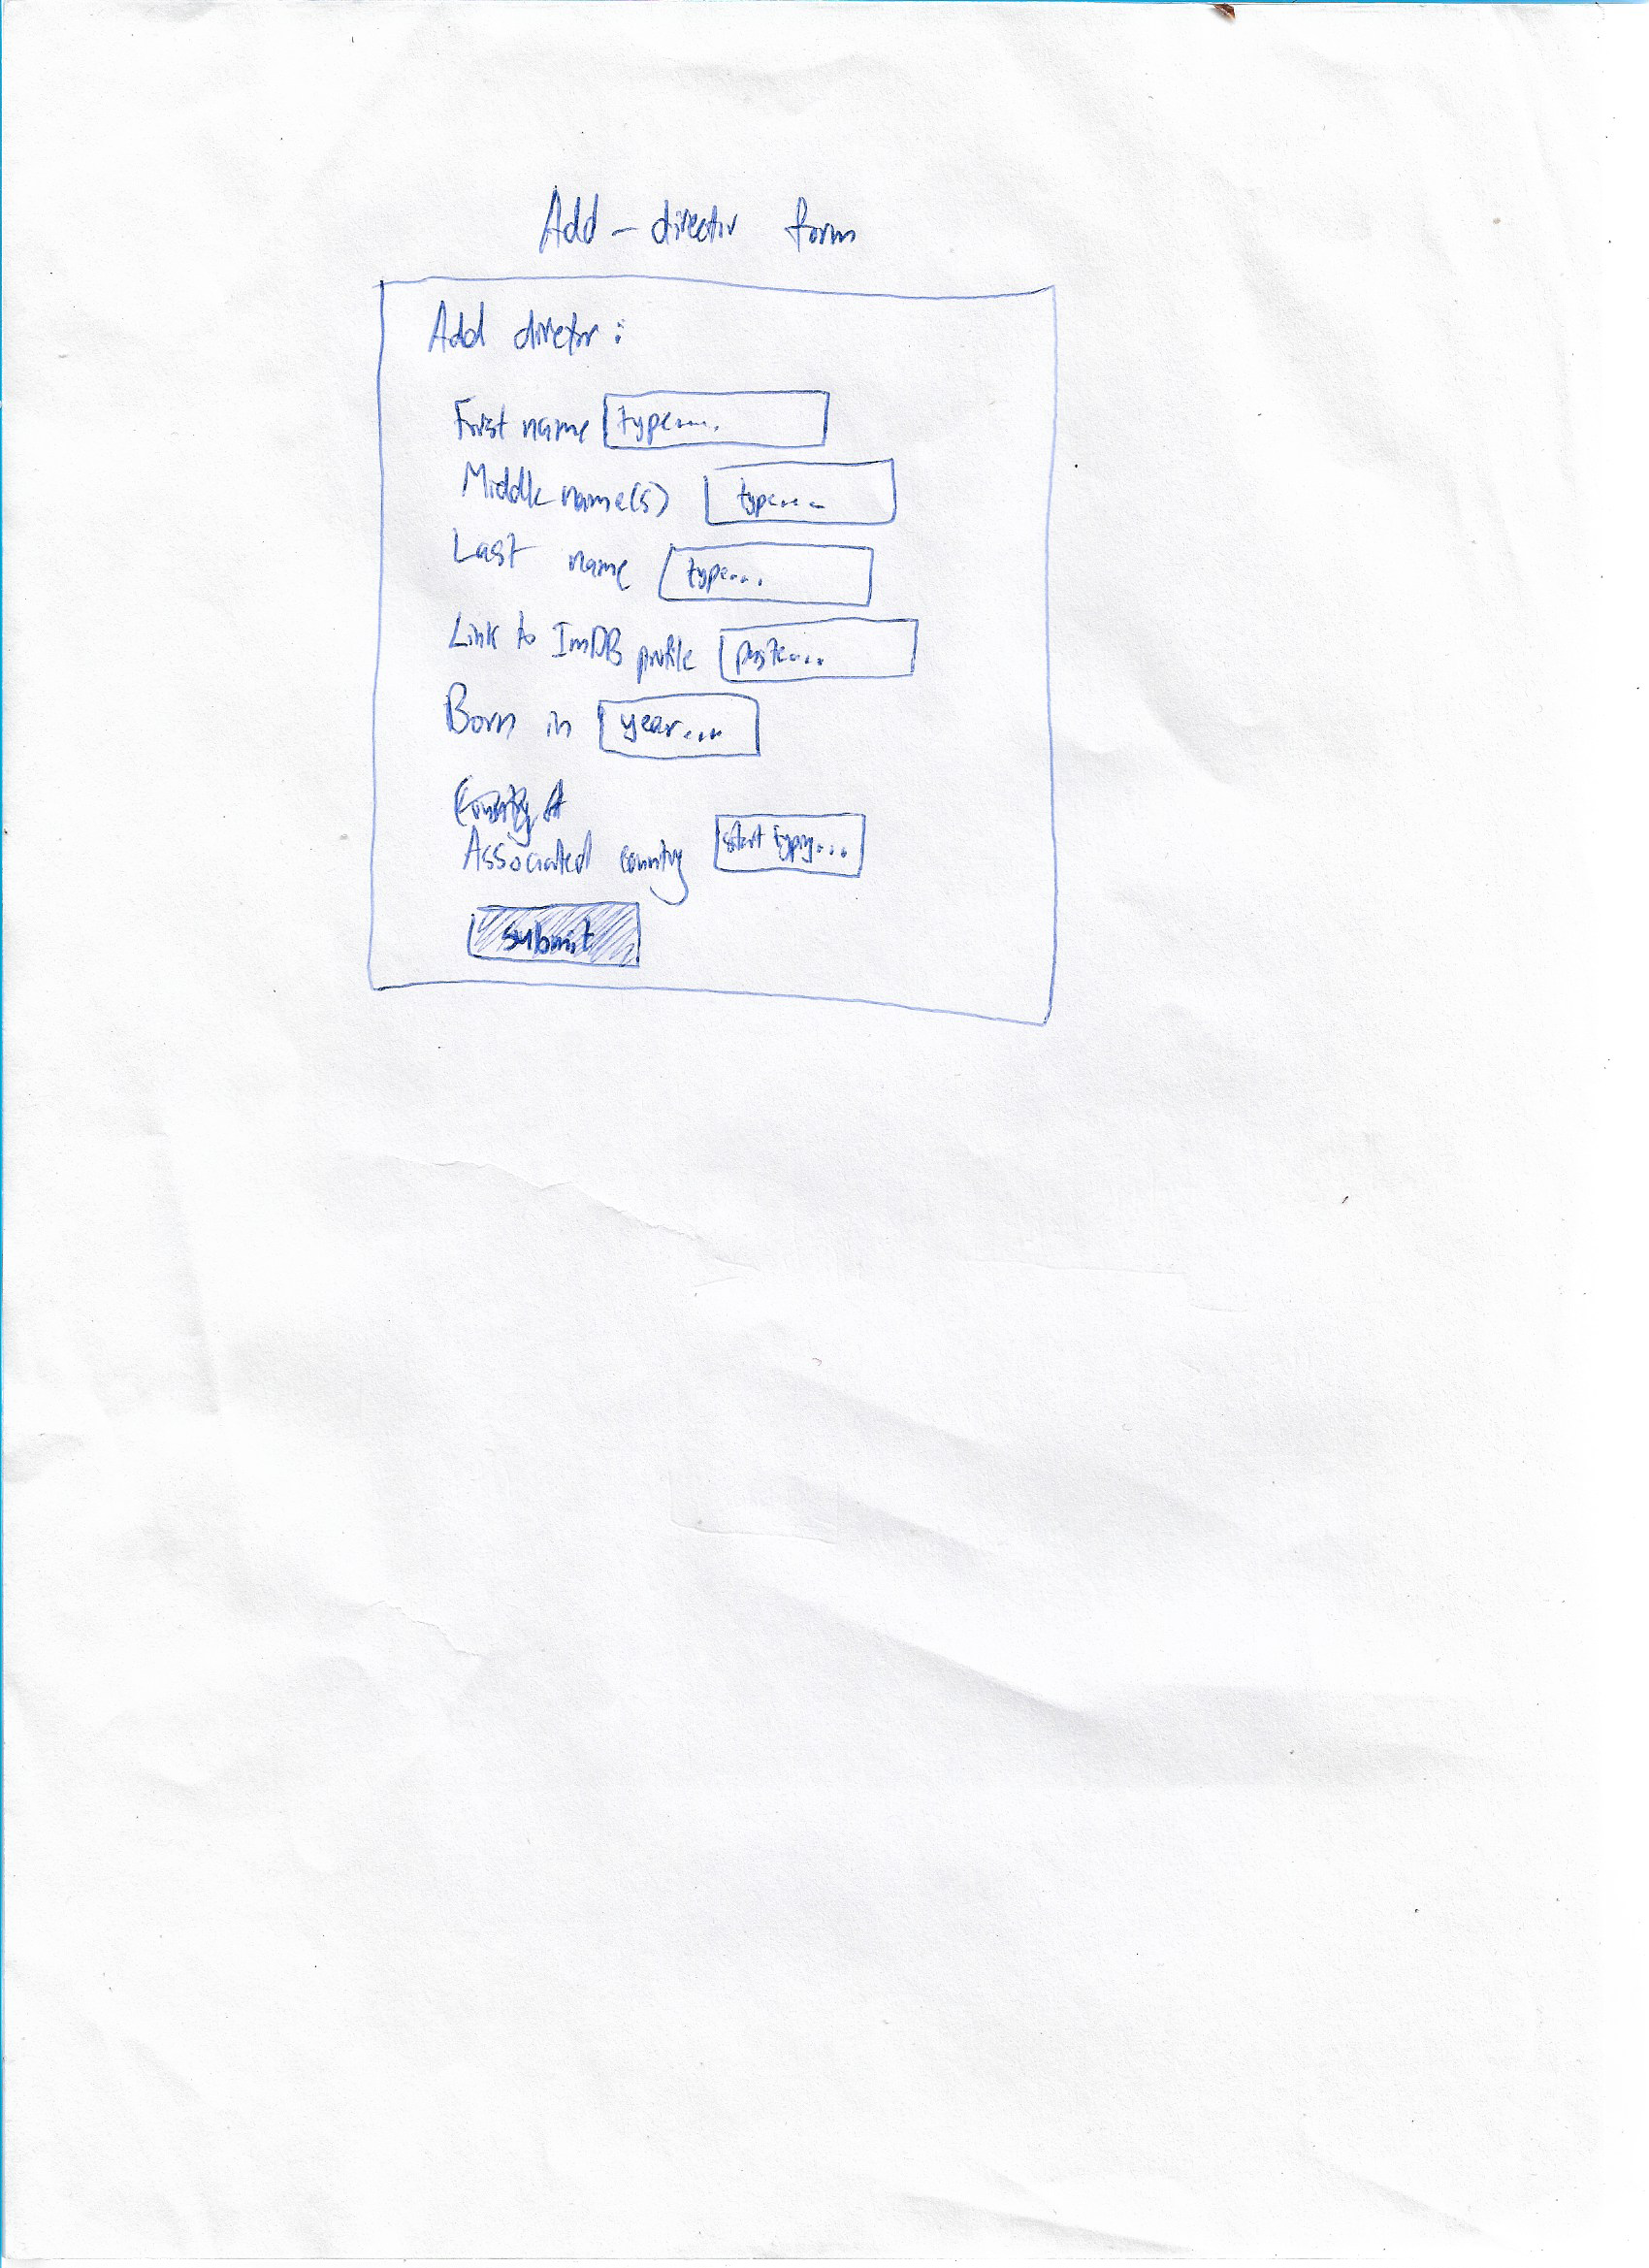 Add-director form
Add director:
First name type....
Middle name(s) type....
Last name type...
Link to ImDB profile paste....
Born in year....
Country of
Associated country start typing...
submit